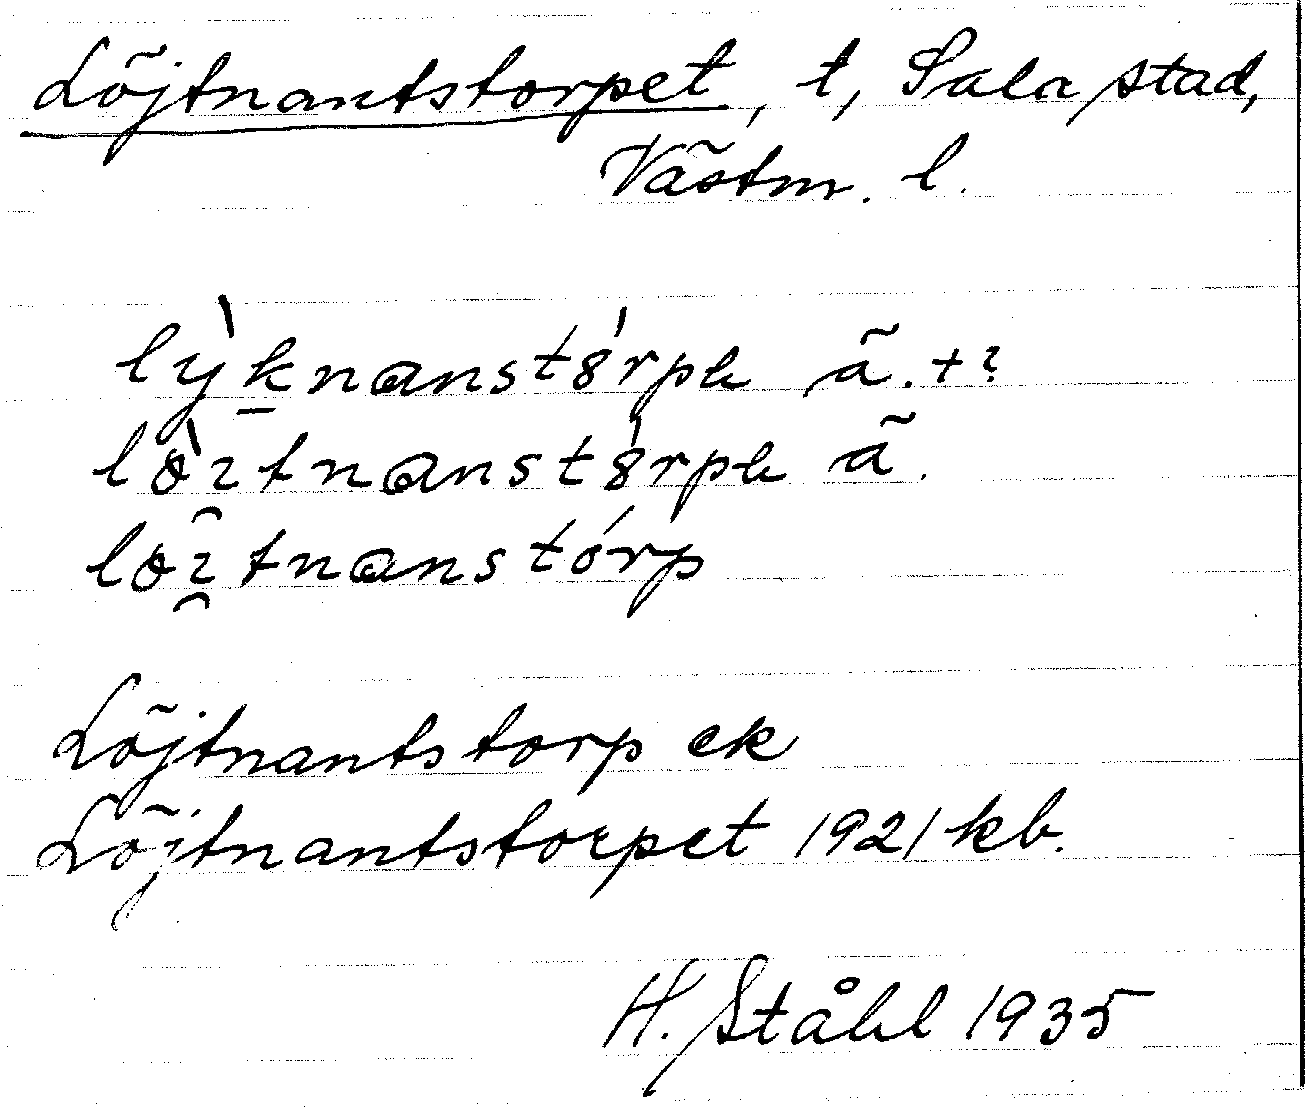 Löjtnantstorpet, t, Sala stad,
Västm. l.
lỳknanstórpe ä. +?
lòitnanstórpe ä.
loitnanstórp
Löjtnantstorp ek
Löjtnantstorpet 1921 kb.
H. Ståhl 1935